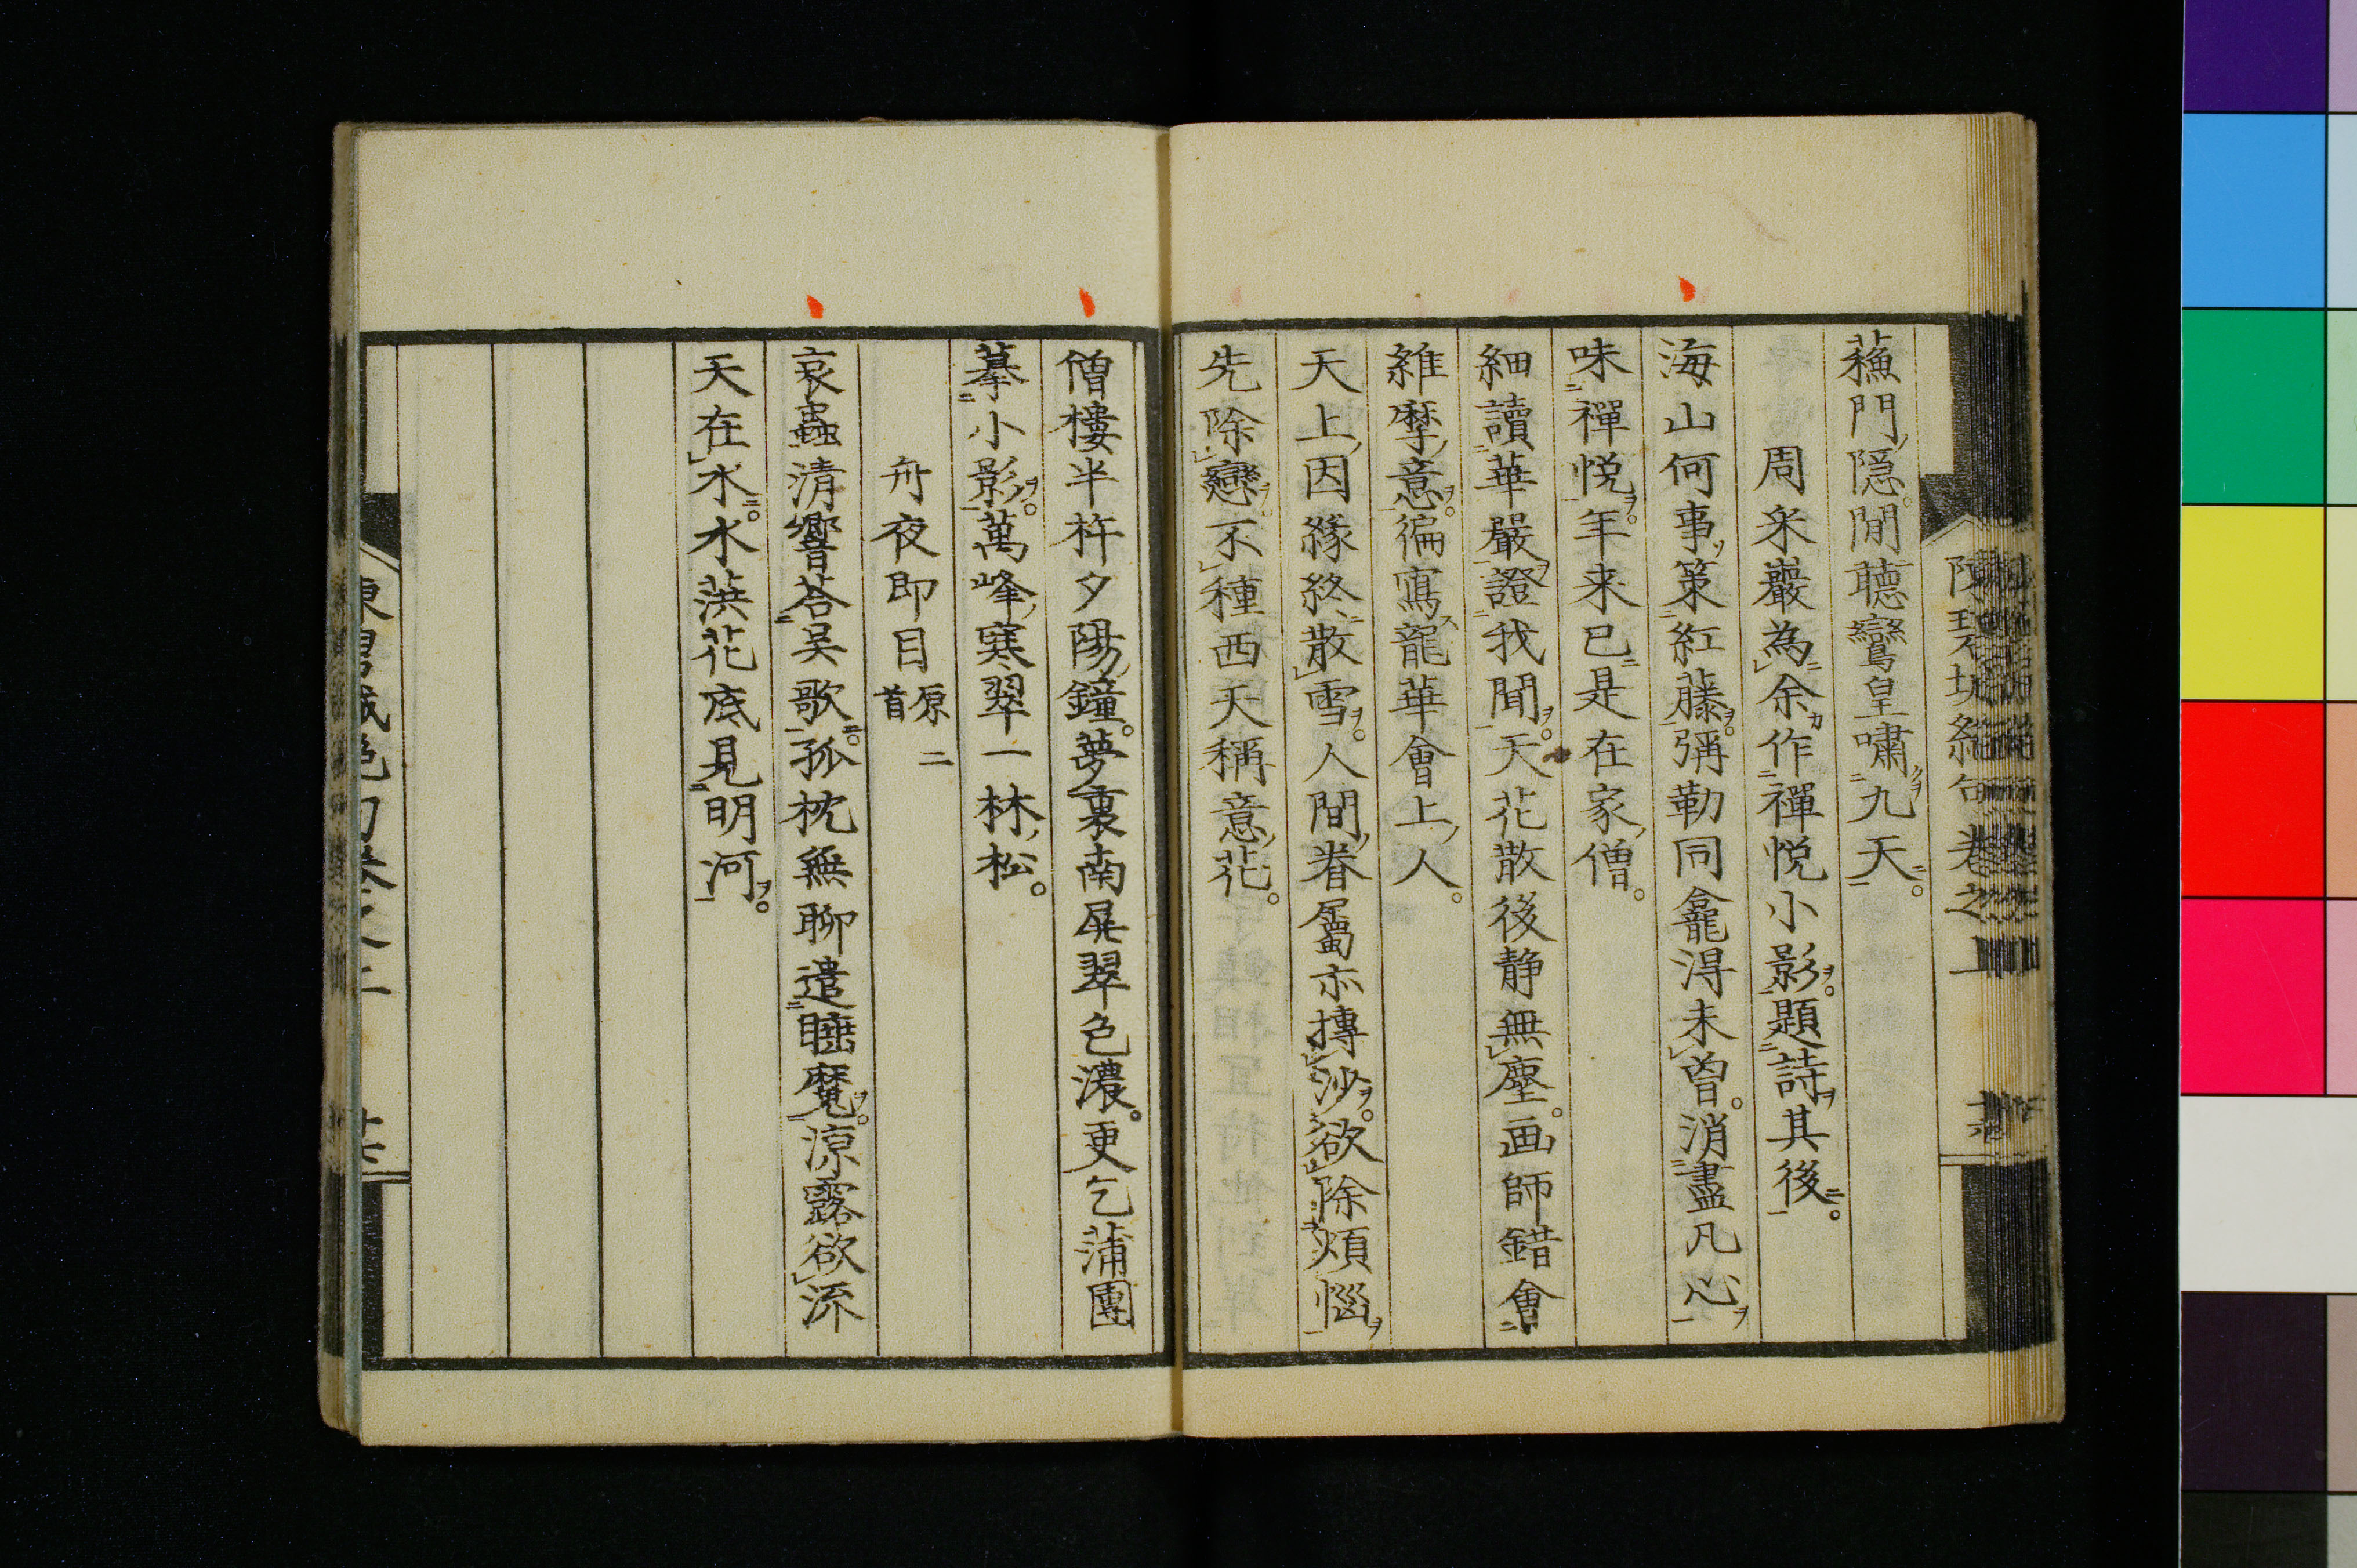 蘓門隠閒聴鸞皇嘯九天
周采巖為余作禪悦小影題詩其後
海山何事策紅藤彌勒同龕淂未曾消盡凡心
味禪悦年来已是在家僧
細讀華嚴證我聞天花散後静無塵画師錯會
維摩意徧寫龍華會上人
天上因緣終散雪人間眷屬亦摶沙欲除煩惱
先除戀不種西天稱意花
陳碧城絶句卷之上
僧樓半杵夕陽鐘夢裏南屏翠色濃更乞蒲團
摹小影萬峰寒翠一林松
舟夜即目原二首
哀蟲清響荅吴歌孤枕無聊遣睡魔涼露欲流
天在水水葓花底見明河